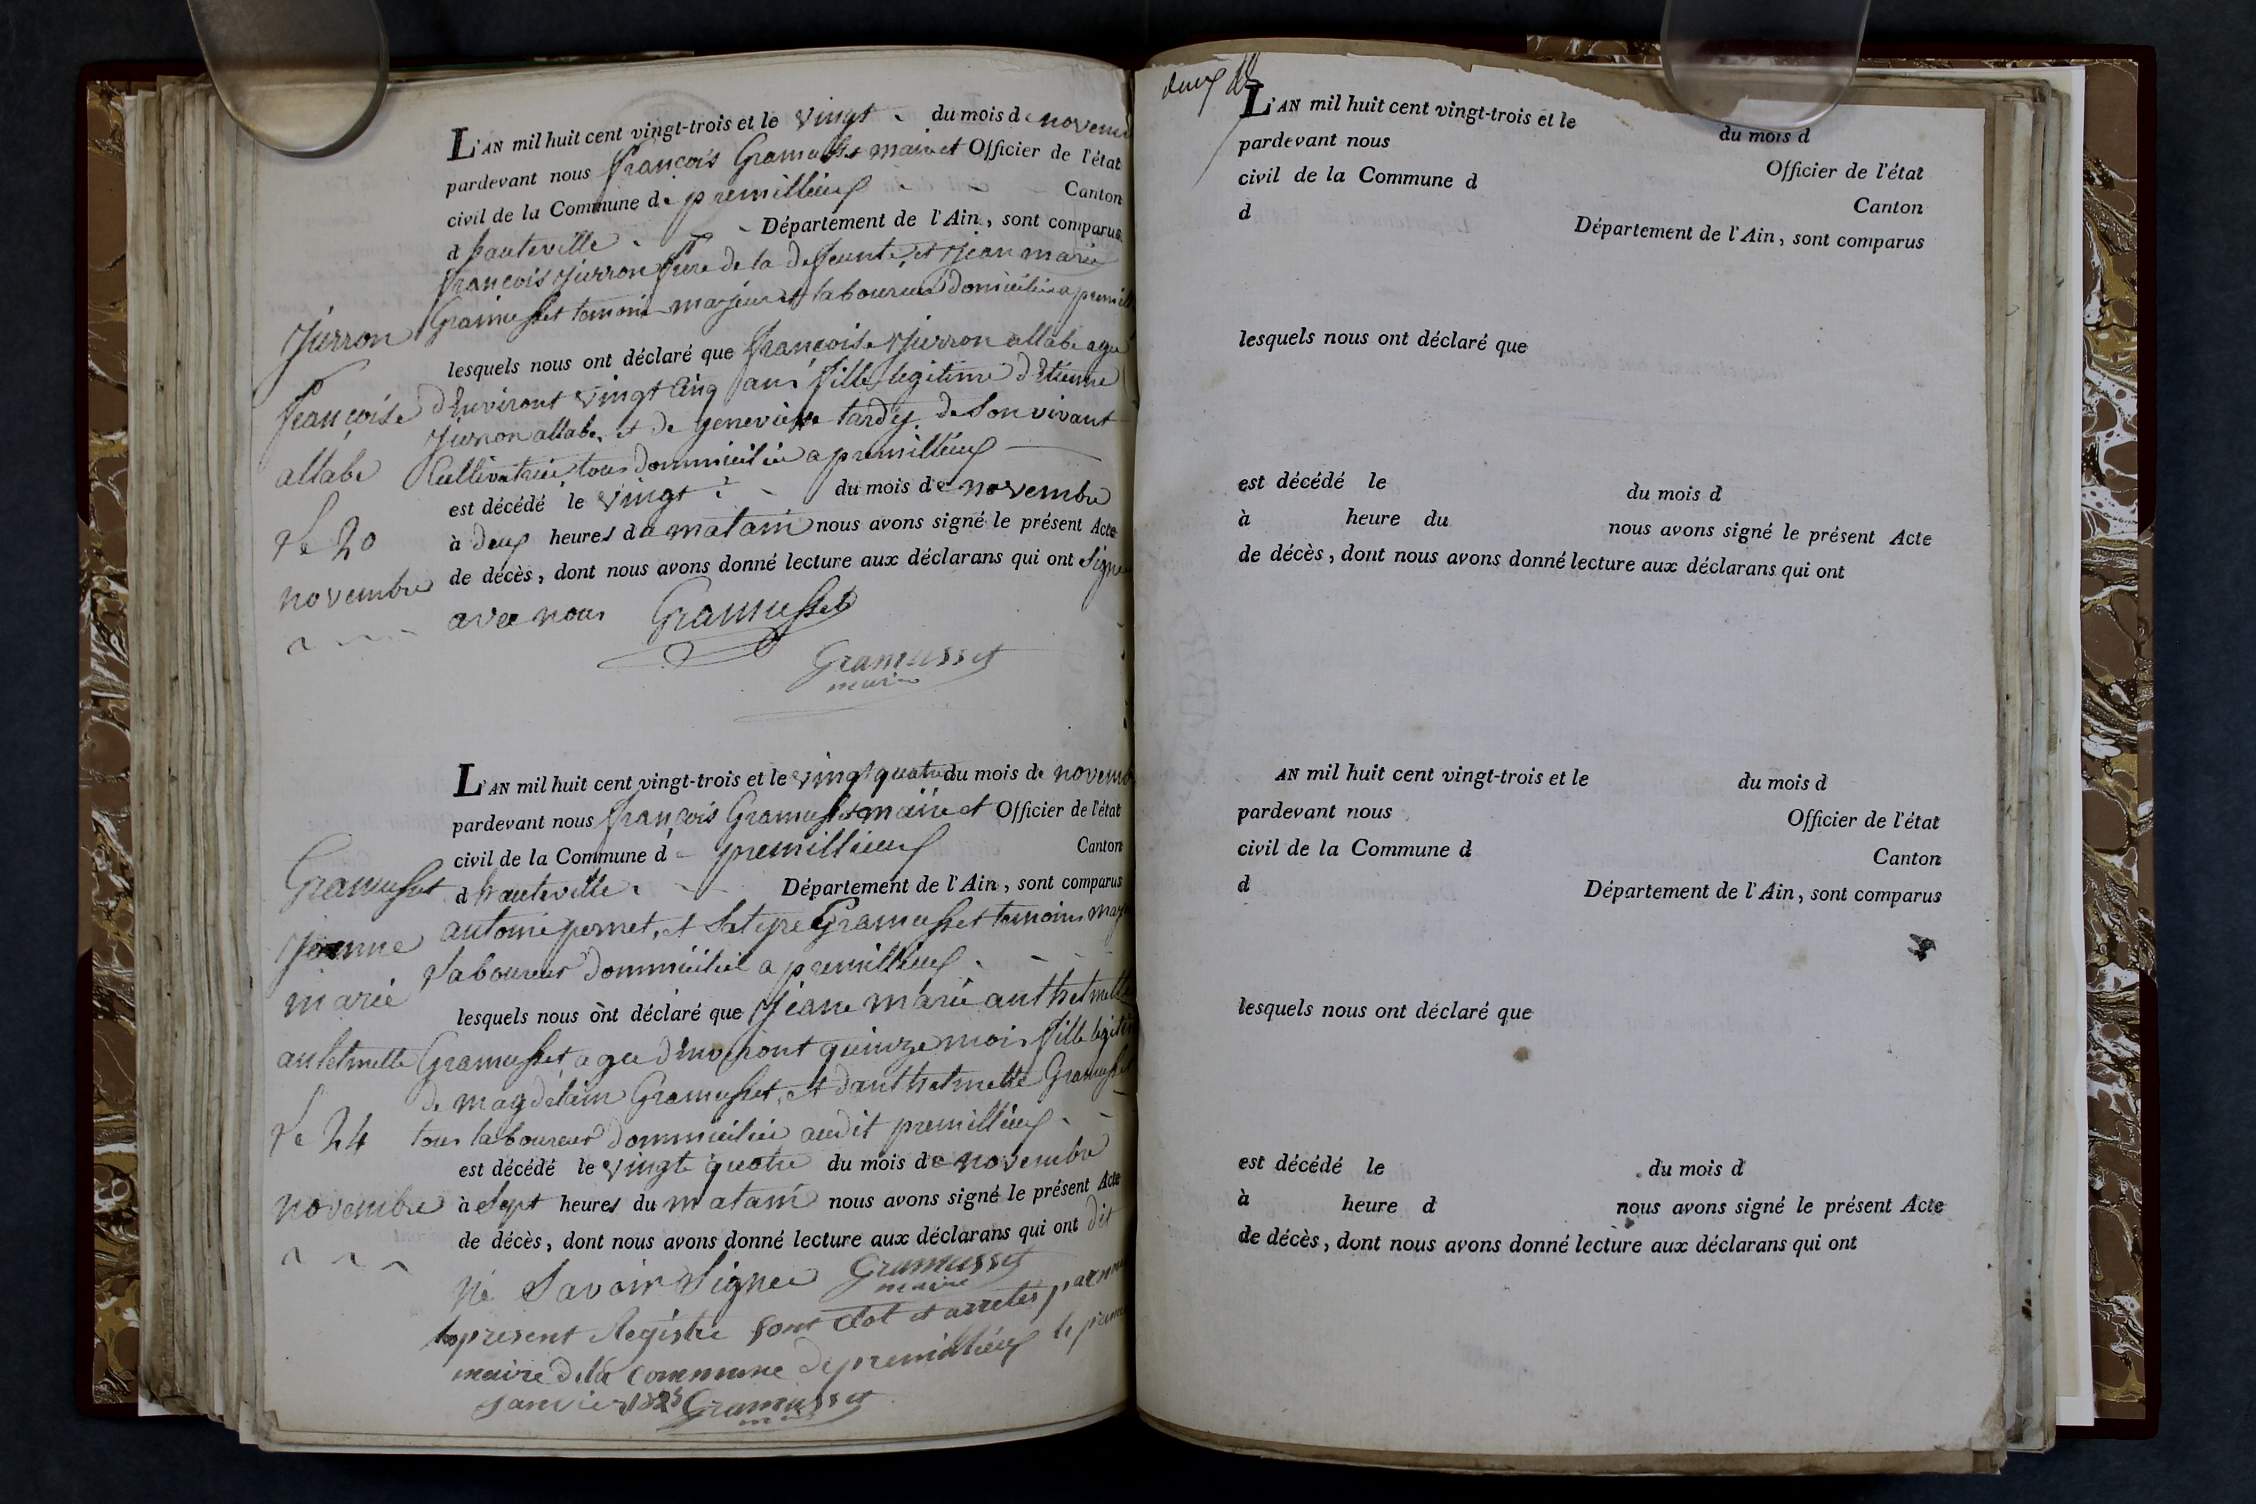 L'AN mil huit cent vingt-trois et le vingt du mois de novem
pardevant nous françois Gramusset maire et Officier de l'état
civil de la Commune de premillieux Canton
d hauteville Département de l'Ain, sont comparus
françois Jurron frere de la defeunte, et Jean marie
Gramusset temoins majeur et laboureur domicilié a premill
lesquels nous ont déclaré que françoise Jurron allabe agee
d'Environt vingt Cinq ans fille legitime d'Etienne
Jurron allabe, et de genevieve tardy, de Son vivant
Cultivatrice, tous dommicilié a premillieux
est décédé le vingt du mois de novembre
à deux heures du matain nous avons signé le présent Acte
de décès, dont nous avons donné lecture aux déclarans qui ont signe
avec nous Gramusset
Gramusset
maire
Jurron
françoise
allabe
Le 20
novembre
L'AN mil huit cent vingt-trois et le vingt quatre du mois de novemb
pardevant nous françois Gramusset maire et Officier de l'état
civil de la Commune d premillieux Canton
d hauteville Département de l'Ain, sont comparus
antoine pernet, et Satyre Gramusset temoins maj
Laboureur dommicilié a premillieux
lesquels nous ont déclaré que Jeane marie anthelmette
Gramusset, agee d'Environt quinze mois fille legiti
de magdelain Gramusset, et d'anthelmette Gramusset
tous laboureur dommicilié audit premillieux
est décédé le vingt quatre du mois de novembre
à Sept heures du matain nous avons signé le présent Acte
de décès, dont nous avons donné lecture aux déclarans qui ont dit
ne Savoir Signer Gramusset
maire
le present Registre sont Clot et arretés par
maire de la Commune de premillieux le premi
Janvier Gramusset
Gramusset
Jeanne
marie
antelmette
Le 24
novembre
deux
L'AN mil huit cent vingt-trois et le du mois d
pardevant nous Officier de l'état
civil de la Commune d Canton
d Département de l'Ain, sont comparus
lesquels nous ont déclaré que
est décédé le du mois d
à heure du nous avons signé le présent Acte
de décès, dont nous avons donné lecture aux déclarans qui ont
AN mil huit cent vingt-trois et le du mois d
pardevant nous Officier de l'état
civil de la Commune d Canton
d Département de l'Ain, sont comparus
lesquels nous ont déclaré que
est décédé le du mois d
à heure d nous avons signé le présent Acte
de décès, dont nous avons donné lecture aux déclarans qui ont